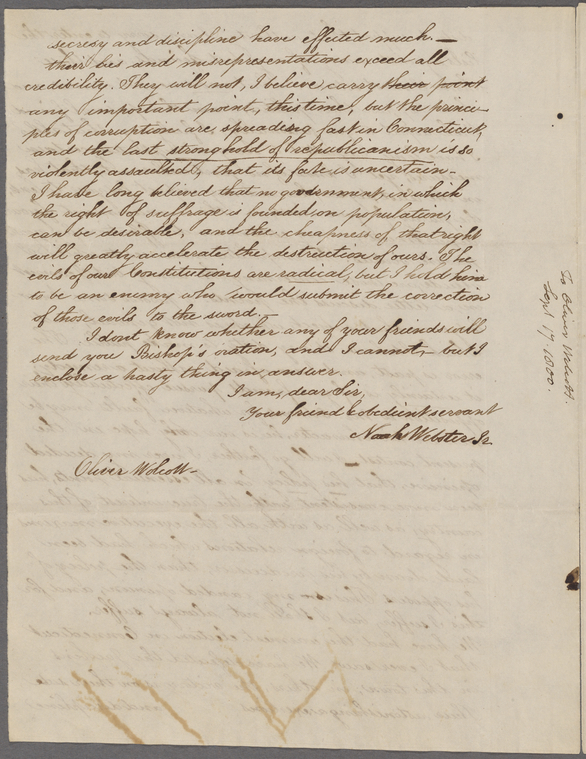 secresy and discipline have effected much.—
their lies and misrepresentations exceed all
credibility. They will not, I believe, carry their point
any important point, this time, but the princi-
ples of corruption are spreading fast in Connecticut,
and the last stronghold of republicanism is so
violently assaulted, that its fate is uncertain—
I have long believed that no government, in which
the right of suffrage is founded on population,
can be desirable, and the cheapness of that right
will greatly accelerate the destruction of ours. The
evils of our Constitutions are radical, but I hold him
to be an enemy who would submit the correction
of those evils to the sword.—
I dont know whether any of your friends will
send you Bishop's oration, and I cannot, but I
enclose a hasty thing in answer.
I am, dear Sir,
Your friend & obedient servant
Noah Webster Jr
Oliver Wolcott—
To Oliver Wolcott.
Sept 17, 1800.